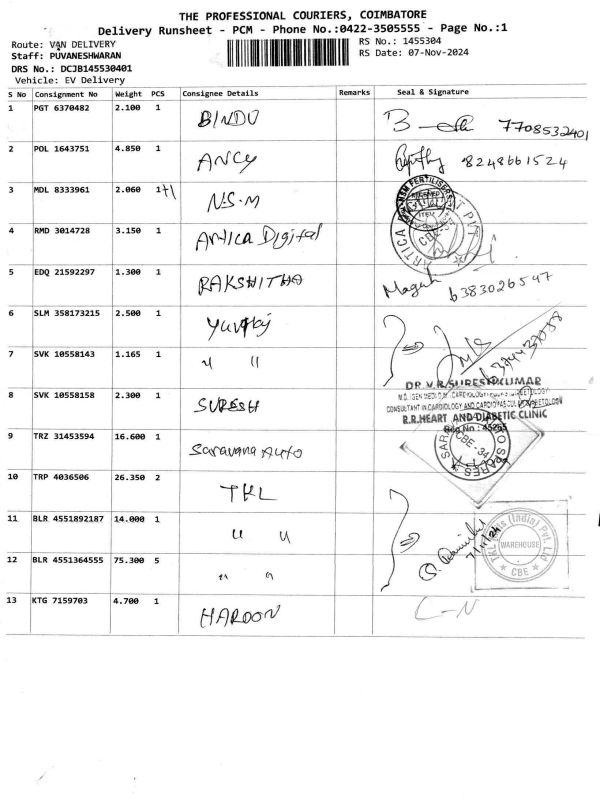 THE PROFESSIONAL COURIERS, COIMBATORE
Delivery Runsheet - PCM - Phone No.:0422-3505555 - Page No.:1
Route: VAN DELIVERY
RS No.: 1455304
Staff: PUVANESHWARAN
RS Date: 07-Nov-2024
DRS No.: DCJB145530401
Vehicle: EV Delivery
S No Consignment No Weight PCS Consignee Details Remarks Seal & Signature
1 PGT 6370482 2.100 1 BINDU 7708532401
2 POL 1643751 4.850 1 ANCY 8248661524
3 MDL 8333961 2.060 1+1 N.S.M
4 RMD 3014728 3.150 1 Artica Digital
5 EDQ 21592297 1.300 1 RAKSHITHA 6383026547
6 SLM 358173215 2.500 1 Yuvraj
7 SVK 10558143 1.165 1 " "
DR.V.R.SURESH KUMAR
CONSULTANT IN CARDIOLOGY AND CARDIOVASCULAR DIABETOLOGY
R.R.HEART AND DIABETIC CLINIC
8 SVK 10558158 2.300 1 SURESH
9 TRZ 31453594 16.600 1 Saravana Auto
CBE - 34
10 TRP 4036506 26.350 2 TKL
11 BLR 4551892187 14.000 1 " "
7/11/24
WAREHOUSE
★ CBE ★
12 BLR 4551364555 75.300 5 " "
13 KTG 7159703 4.700 1 HAROON